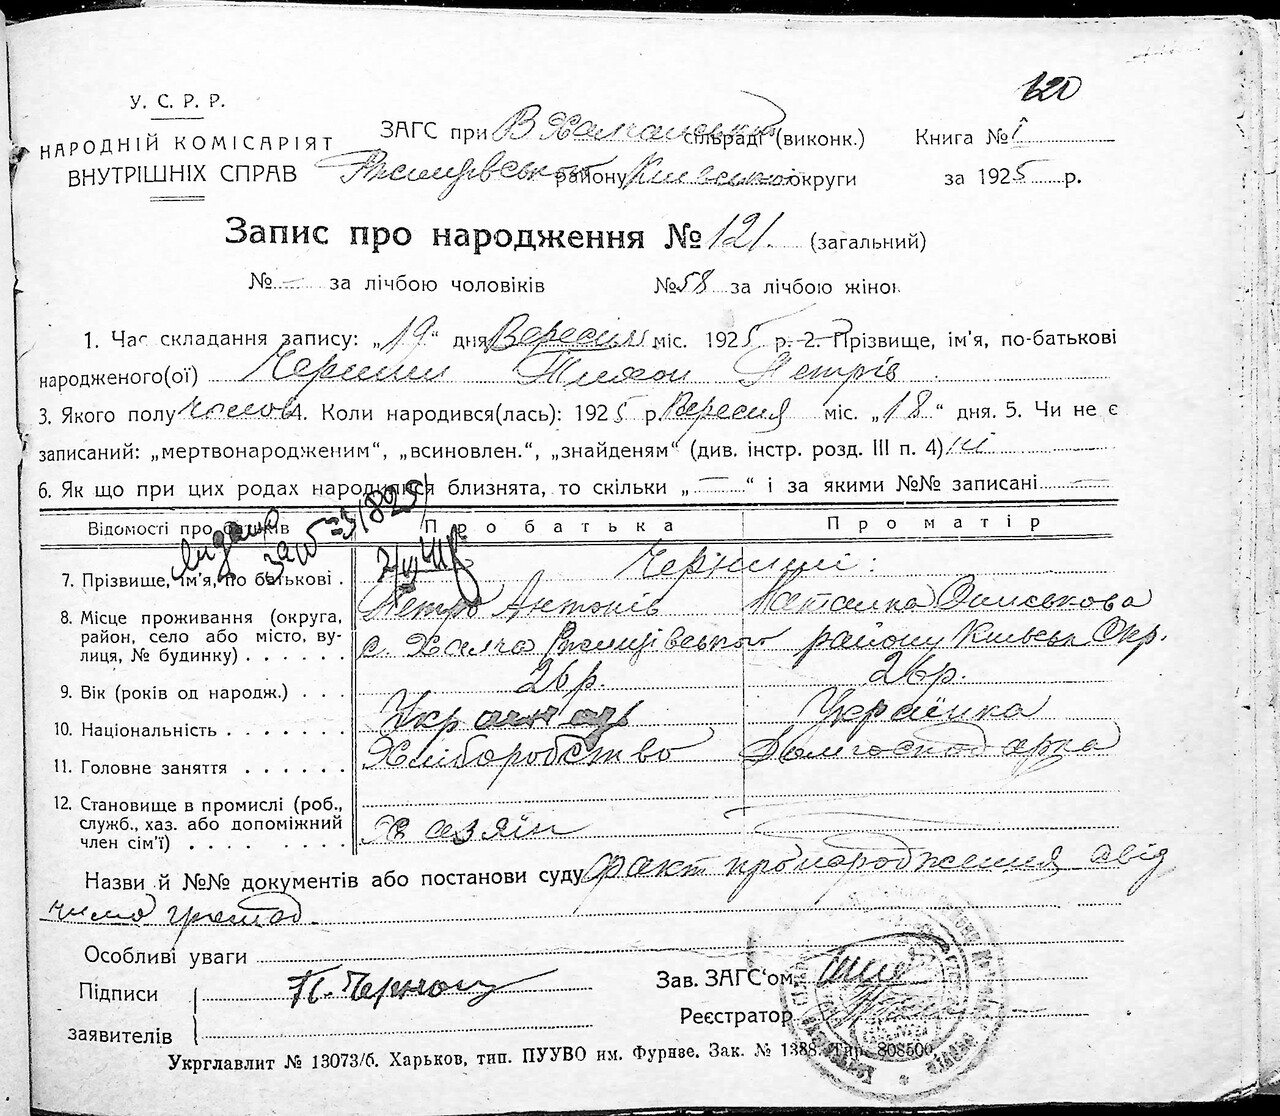 120
У. С. Р. Р.
НАРОДНІЙ КОМІСАРІЯТ
ВНУТРІШНІХ СПРАВ
ЗАГС при В Халчанській сільраді (виконк.)
району Київської округи
Книга № 1
за 1925 р.
Запис про народження № 121. (загальний)
№ — за лічбою чоловіків № 58 за лічбою жінок
1. Час складання запису: „19“ дня Вересня міс. 1925 р. 2. Прізвище, ім'я, по-батькові
народженого(ої) Черниш Тихон Петрів
3. Якого полу 4. Коли народився(лась): 1925 р. Вересня міс. „18“ дня. 5. Чи не є
записаний: „мертвонародженим“, „всиновлен.“, „знайденям“ (див. інстр. розд. III п. 4) ні
6. Як що при цих родах народилися близнята, то скільки „—“ і за якими №№ записані —
Відомості про батьків Про батька Про матір
видано
7. Прізвище, ім'я, по батькові .
Петро Антонів Наталка
8. Місце проживання (округа, район, село або місто, ву-лиця, № будинку) . . . . . .
с. Халча району Київськ Окр.
9. Вік (років од народж.) . . .
26р. 26р.
10. Національність . . . . . . .
Українка
11. Головне заняття . . . . . .
Хліборобство Домгосподарка
12. Становище в промислі (роб., служб., хаз. або допоміжний член сім'ї) . . . . . . . .
Хазяїн
Назви й №№ документів або постанови суду факт про народження свід
громад
Особливі уваги
Підписи
заявителів
П. Черниш
Зав. ЗАГС'ом
Реєстратор
Укрглавлит № 13073/б. Харьков, тип. ПУУВО им. Фрунзе. Зак. № 1388. Тир. 808500.